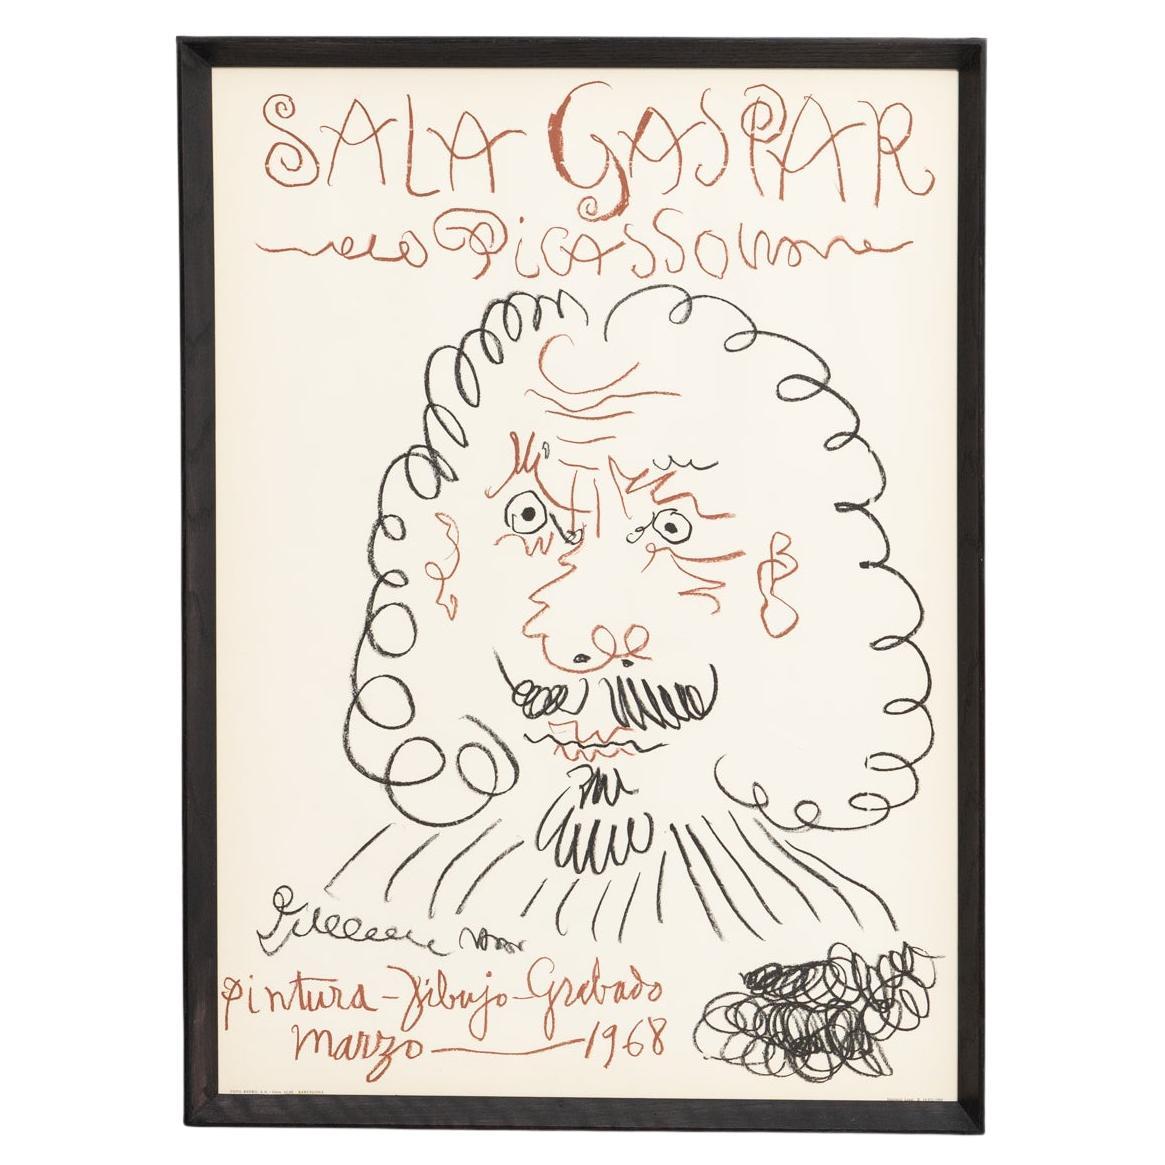 SALA GASPAR
Picasso
pintura - Dibujo - Grabado
Marzo — 1968